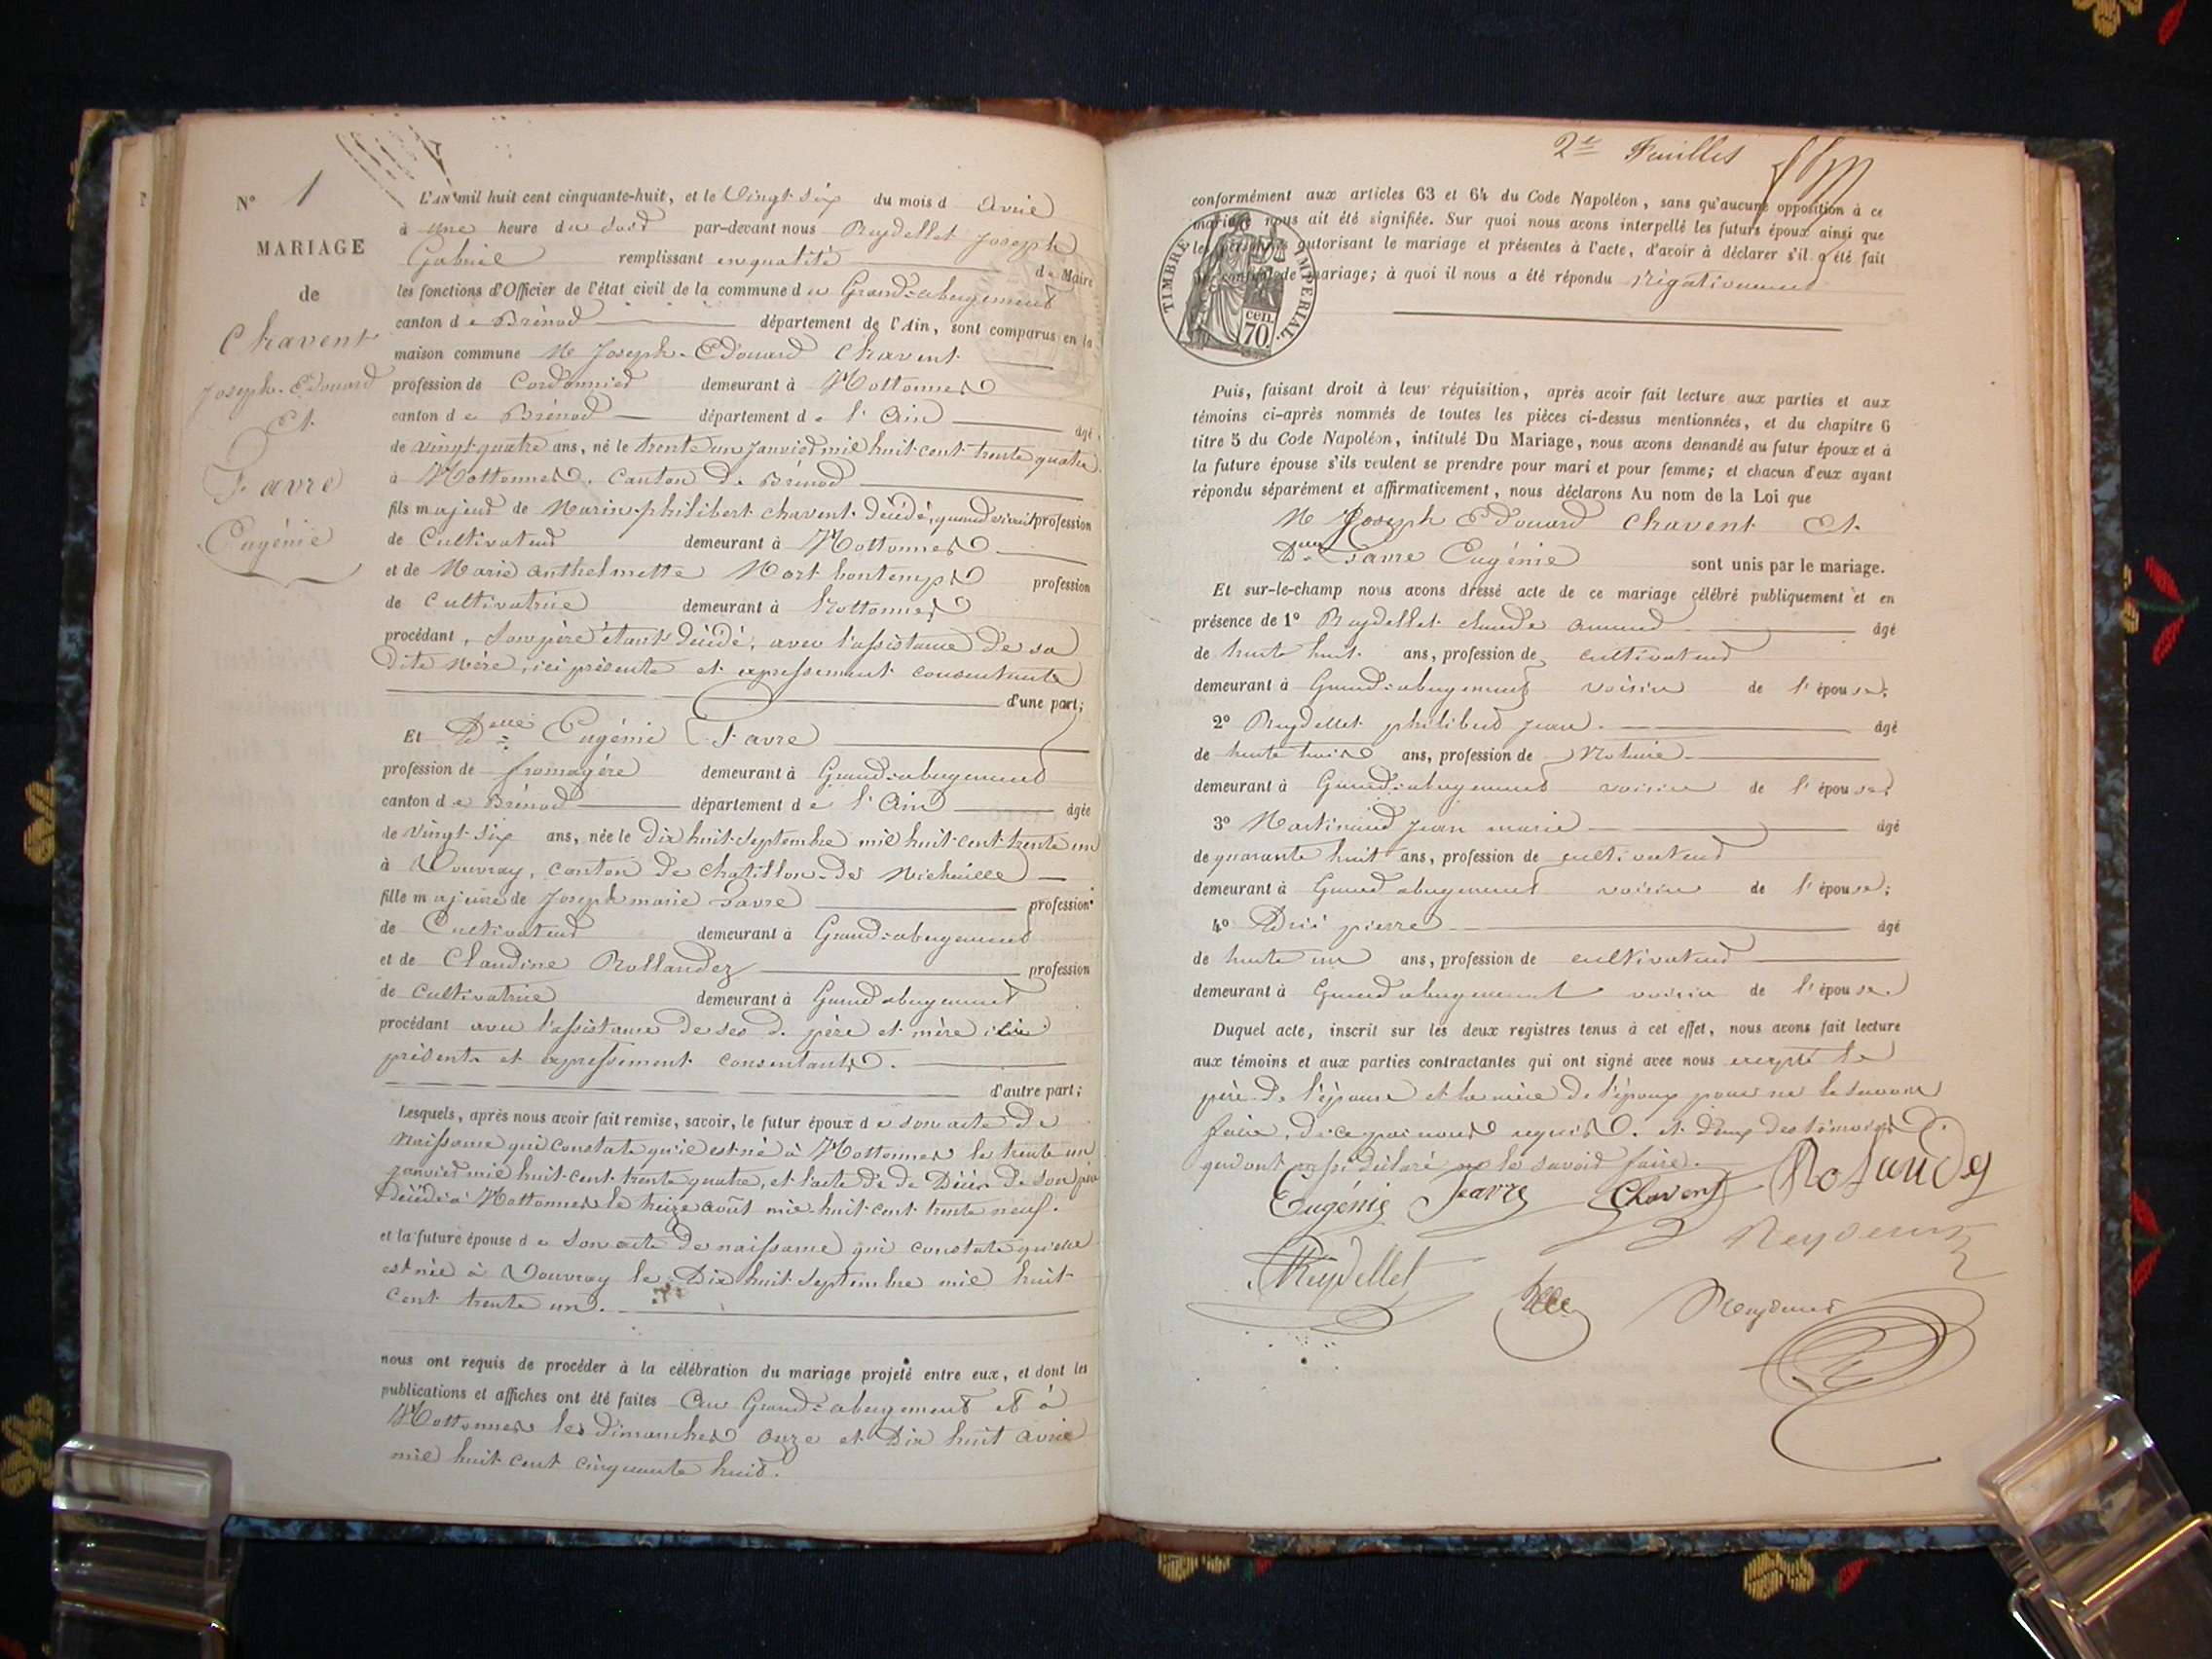 N° 1
MARIAGE
de
Chavent
Joseph-Edouard
Et
Favre
Eugénie
L'AN mil huit cent cinquante-huit, et le Vingt six du mois d avril
à une heure du soir par-devant nous Reydellet Joseph
Gabriel remplissant en qualité de Maire
les fonctions d'Officier de l'état civil de la commune du Grand-abergement
canton de Brénod département de l'Ain, sont comparus en la
maison commune M Joseph-Edouard Chavent
profession de Cordonnier demeurant à Hottonnes
canton de Brénod département de l'Ain âgé
de vingt quatre ans, né le trente un janvier mil huit cent trente quatre
à Hottonnes, Canton de Brénod
fils majeur de Marin-philibert chavent décédé, quand vivait profession
de Cultivateur demeurant à Hottonnes
et de Marie anthelmette Mort bontemps profession
de Cultivatrice demeurant à Hottonnes
procédant, son père étant décédé, avec l'assistance de sa
dite mère, ici présente et expressement consentante
d'une part;
Et Delle Eugénie Favre
profession de fromagère demeurant à Grand-abergement
canton de Brénod département de l'Ain âgée
de vingt-six ans, née le dix huit septembre mil huit cent trente un
à Vouvray, canton de Chatillon-de Michaille
fille majeure de Joseph marie Favre profession
de Cultivateur demeurant à Grand-abergement
et de Claudine Rollandez profession
de cultivatrice demeurant à Grand abergement
procédant avec l'assistance de ses d. père et mère ici
présents et expressement consentants.
d'autre part;
Lesquels, après nous avoir fait remise, savoir, le futur époux de son acte de
naissance qui constate qu'il est né à Hottonnes le trente un
janvier mil huit cent trente quatre, et l'acte de de Décès de son père
décédé à Hottonnes le treize août mil huit cent trente neuf.
et la future épouse de son acte de naissance qui constate qu'elle
est née à Vouvray le Dix huit septembre mil huit
cent trente un.
nous ont requis de procéder à la célébration du mariage projeté entre eux, et dont les
publications et affiches ont été faites Au Grand-abergement et à
Hottonnes les dimanches onze et dix huit avril
mil huit cent cinquante huit.
2e Feuillet
conformément aux articles 63 et 64 du Code Napoléon, sans qu'aucune opposition à ce
mariage nous ait été signifiée. Sur quoi nous avons interpellé les futurs époux ainsi que
les personnes autorisant le mariage et présentes à l'acte, d'avoir à déclarer s'il a été fait
un contrat de mariage; à quoi il nous a été répondu Négativement
TIMBRE IMPERIAL
cen. 70
Puis, faisant droit à leur réquisition, après avoir fait lecture aux parties et aux
témoins ci-après nommés de toutes les pièces ci-dessus mentionnées, et du chapitre 6
titre 5 du Code Napoléon, intitulé Du Mariage, nous avons demandé au futur époux et à
la future épouse s'ils veulent se prendre pour mari et pour femme; et chacun d'eux ayant
répondu séparément et affirmativement, nous déclarons Au nom de la Loi que
M Joseph Edouard Chavent Et
Delle Favre Eugénie sont unis par le mariage.
Et sur-le-champ nous avons dressé acte de ce mariage célébré publiquement et en
présence de 1° Reydellet claude âgé
de trente huit ans, profession de cultivateur
demeurant à Grand-abergement voisin de l'épouse;
2° Reydellet philibert jean âgé
de trente trois ans, profession de Notaire
demeurant à Grand-abergement voisin de l'épouse;
3° Martinand jean marie âgé
de quarante huit ans, profession de cultivateur
demeurant à Grand abergement voisin de l'épouse;
4° pierre âgé
de trente un ans, profession de cultivateur
demeurant à Grand abergement voisin de l'épouse.
Duquel acte, inscrit sur les deux registres tenus à cet effet, nous avons fait lecture
aux témoins et aux parties contractantes qui ont signé avec nous excepté le
père de l'épouse et la mère de l'époux pour ne le savoir
faire, de ce par nous requis. et deux des témoins
qui ont aussi déclaré ne le savoir faire.
Eugénie Favre Chavent Rolandez
Reydellet